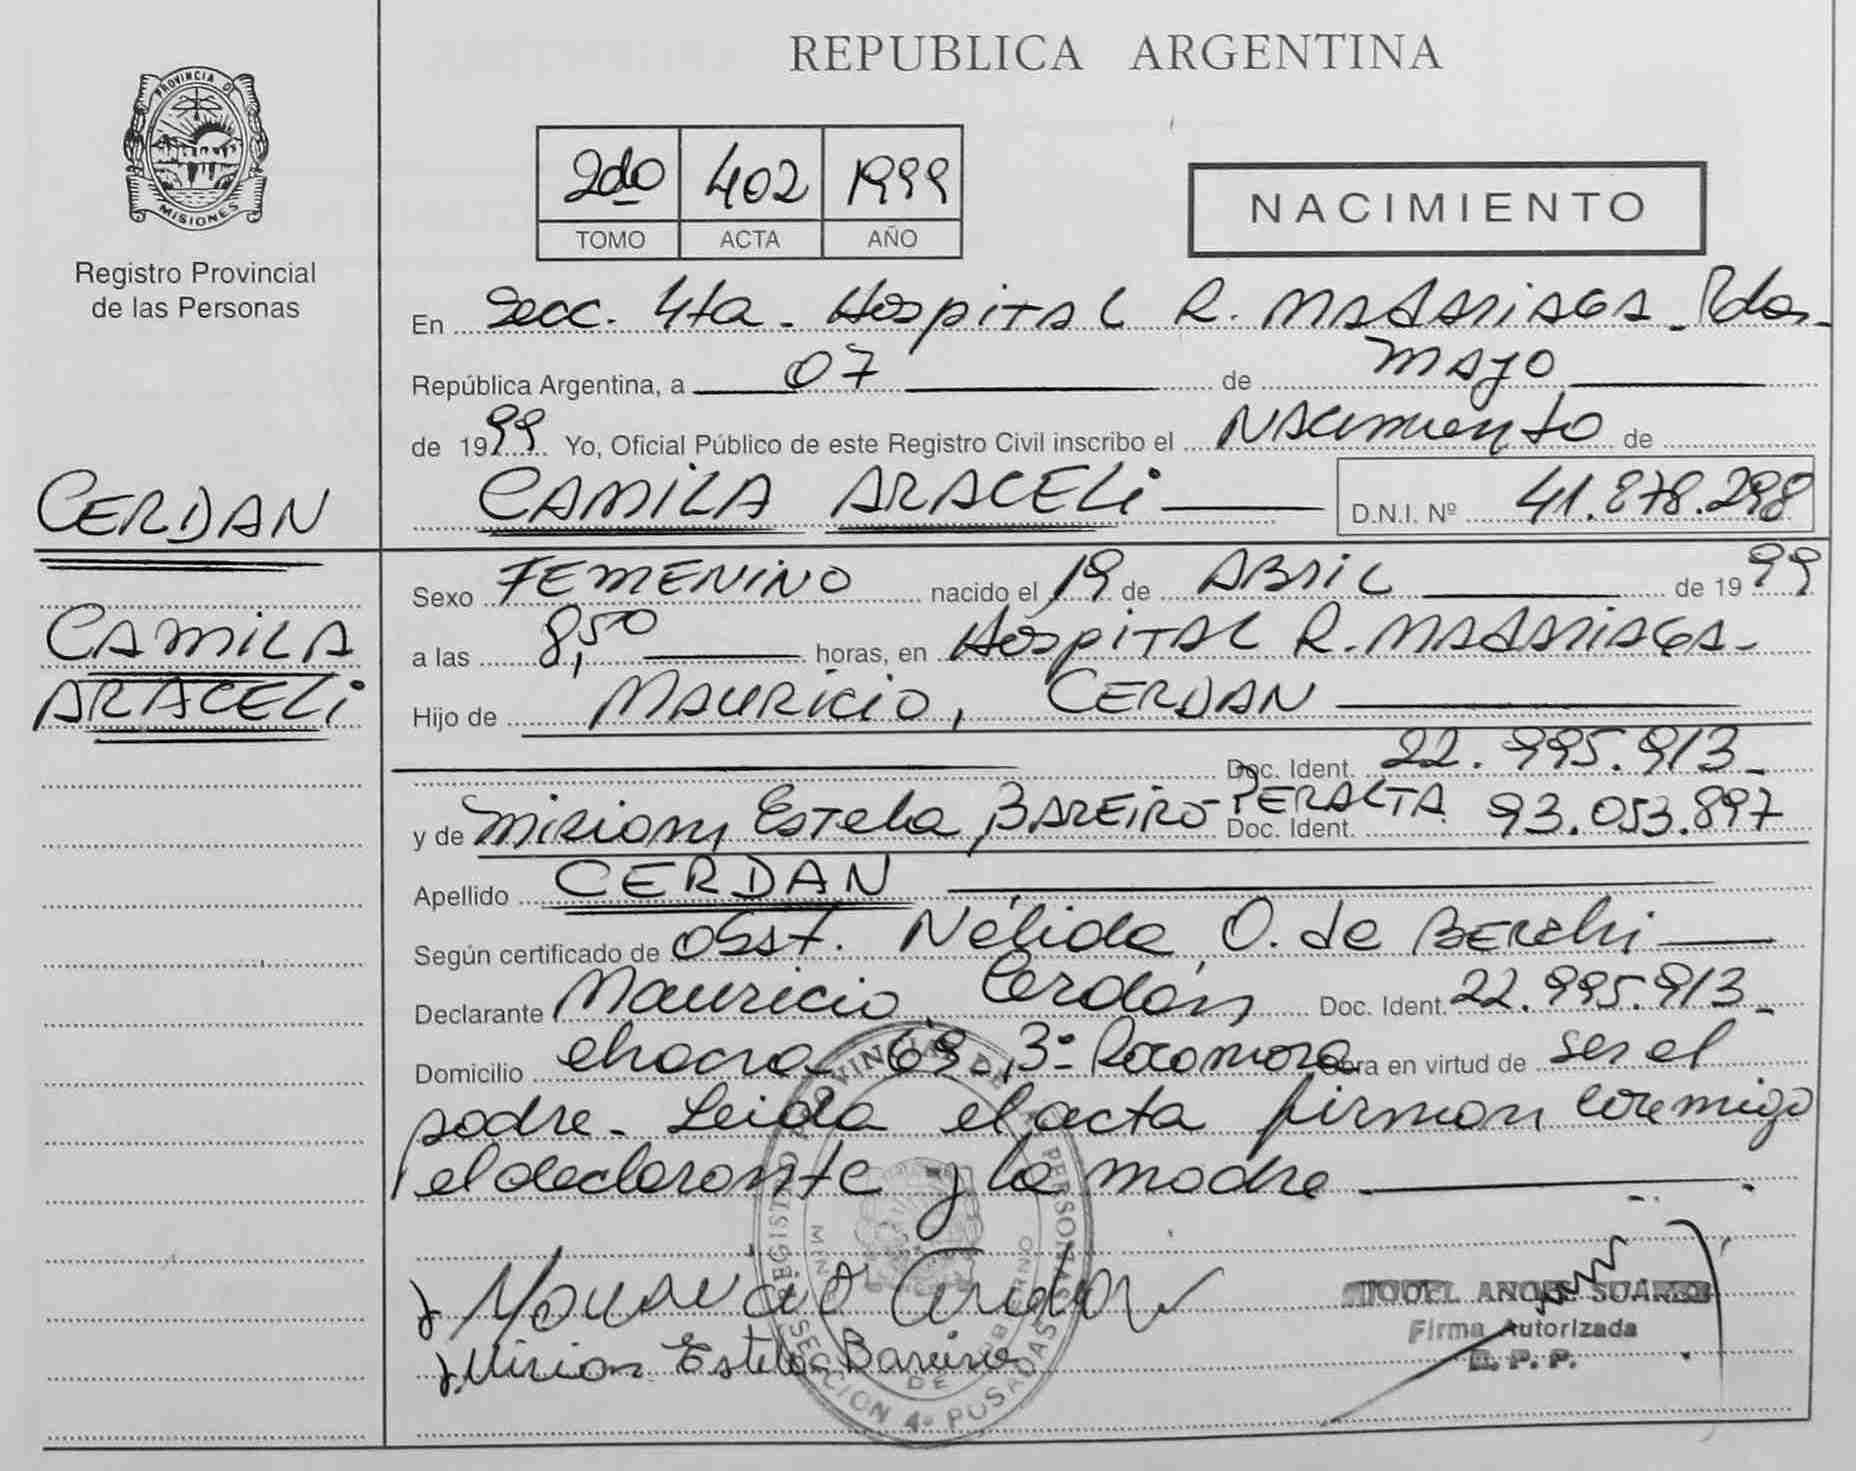 REPUBLICA ARGENTINA
PROVINCIA DE
MISIONES
Registro Provincial
de las Personas
2do 402 1999
TOMO ACTA AÑO
NACIMIENTO
En Secc. 4ta - Hospital R. Madariaga - Pdas.
República Argentina, a 07 de mayo
de 1999 Yo, Oficial Público de este Registro Civil inscribo el Nacimiento de
CERDAN
CAMILA ARACELi D.N.I. Nº 41.878.298
CAMILA
ARACELi
Sexo FEMENINO nacido el 19 de Abril de 1999
a las 8,50 horas, en Hospital R. Madariaga -
Hijo de Mauricio, CERDAN
Doc. Ident. 22.995.913
y de Miriam Estela BAREiRO PERALTA Doc. Ident. 93.053.897
Apellido CERDAN
Según certificado de Obst. Nélida O. de
Declarante Mauricio Cerdán Doc. Ident. 22.995.913
Domicilio chacra 69, 3º Rocamora en virtud de ser el
padre - Leida el acta firman conmigo
el declarante y la madre
REGISTRO PROVINCIAL DE LAS PERSONAS
SECCION 4º POSADAS
Mauricio Cerdan
Mirian Estela Bareiro
Firma Autorizada